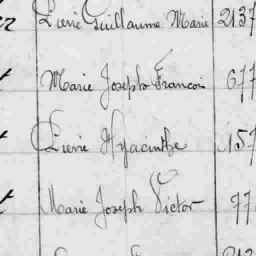 Pierre Guillaume Marie 2137
Marie Joseph Francois 677
Pierre Hyacinthe 157
Marie Joseph Victor 77